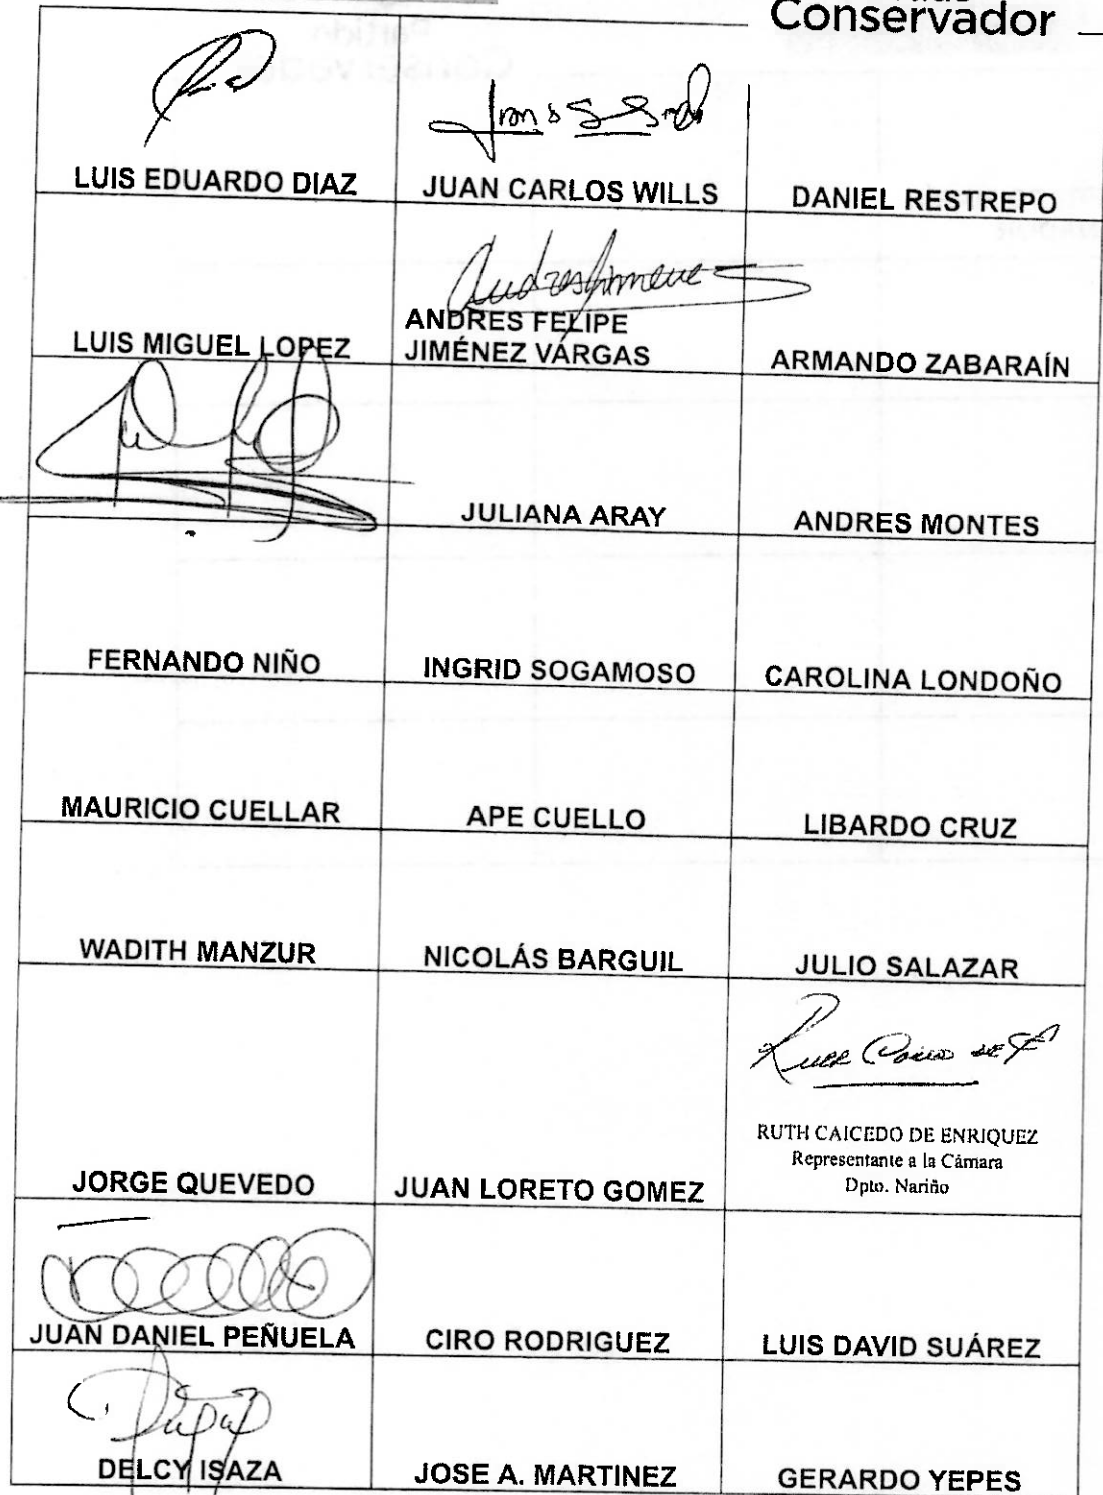 Conservador
LUIS EDUARDO DIAZ
JUAN CARLOS WILLS
DANIEL RESTREPO
LUIS MIGUEL LOPEZ
Andres Jimenez
ANDRES FELIPE
JIMÉNEZ VARGAS
ARMANDO ZABARAÍN
JULIANA ARAY
ANDRES MONTES
FERNANDO NIÑO
INGRID SOGAMOSO
CAROLINA LONDOÑO
MAURICIO CUELLAR
APE CUELLO
LIBARDO CRUZ
WADITH MANZUR
NICOLÁS BARGUIL
JULIO SALAZAR
JORGE QUEVEDO
JUAN LORETO GOMEZ
RUTH CAICEDO DE ENRIQUEZ
Representante a la Cámara
Dpto. Nariño
JUAN DANIEL PEÑUELA
CIRO RODRIGUEZ
LUIS DAVID SUÁREZ
DELCY ISAZA
JOSE A. MARTINEZ
GERARDO YEPES